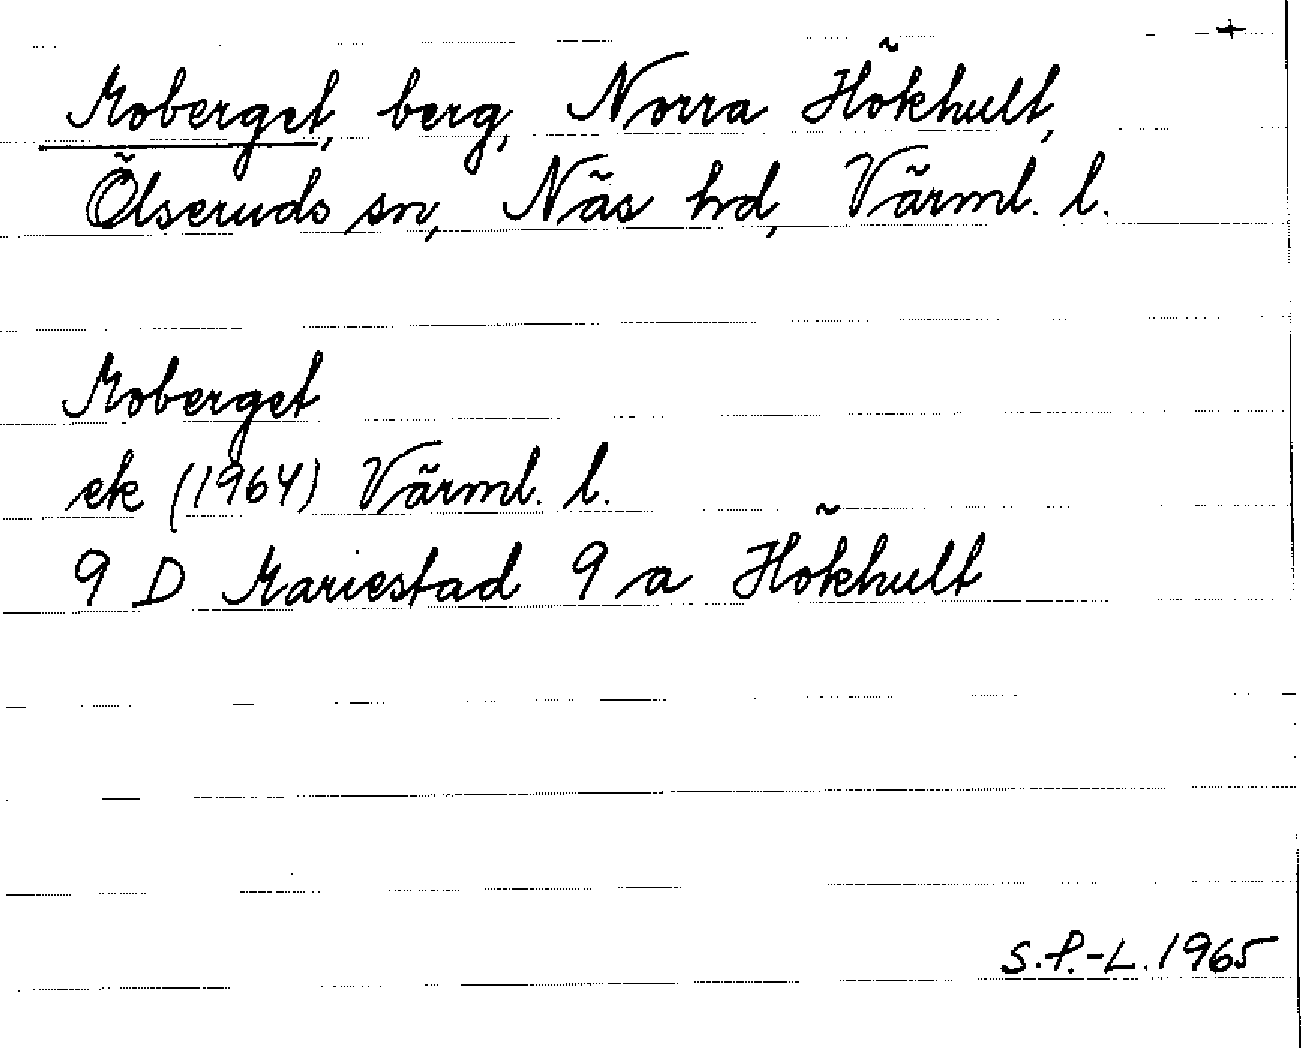 +
Moberget, berg, Norra Hökhult,
Ölseruds sn, Näs hd, Värml. l.
Moberget
ek (1964) Värml. l.
9 D Mariestad 9 a Hökhult
S.P.-L. 1965